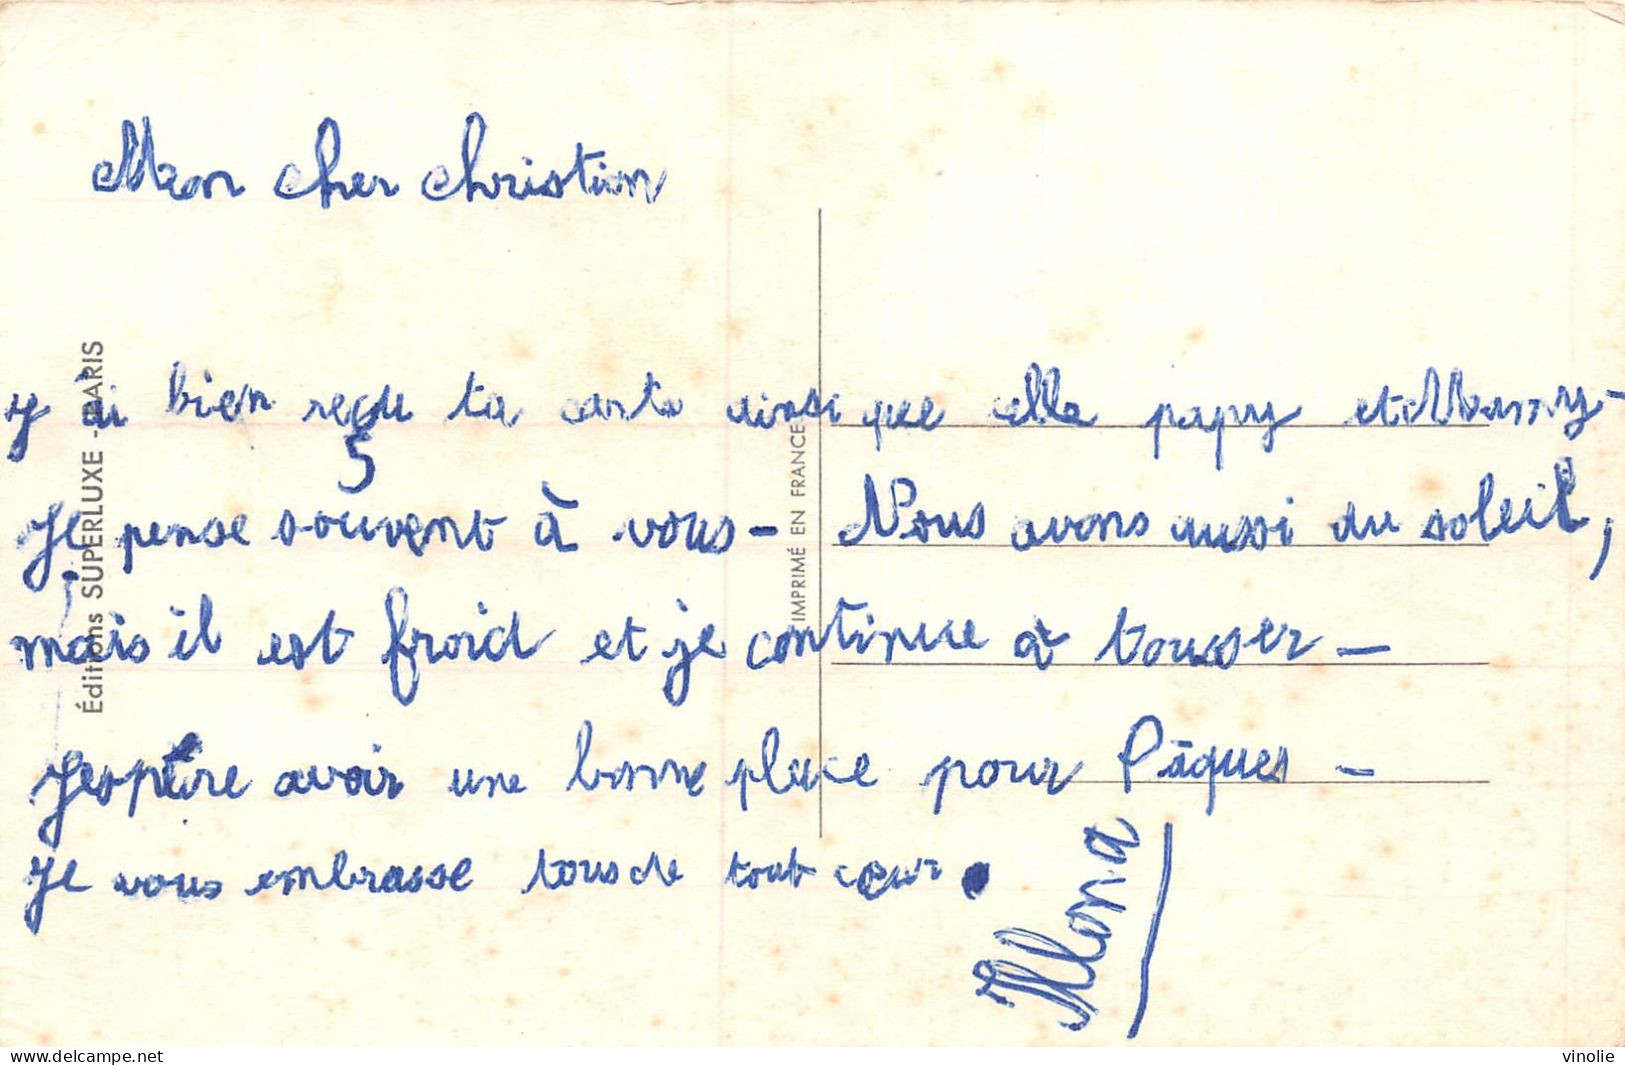 Mon cher Christian
J'ai bien reçu ta carte ainsi que celle papy et Mamy -
Je pense souvent à vous - Nous avons aussi du soleil,
mais il est froid et je continue à tousser -
J'espère avoir une bonne place pour Pâques -
Je vous embrasse tous de tout cœur.
Illona
Éditions SUPERLUXE - PARIS
IMPRIMÉ EN FRANCE
delcampe.net
vinolie